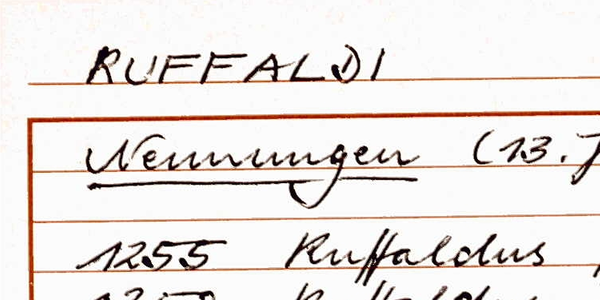 RUFFALDI
Nennungen (13. J
1255 Ruffaldus